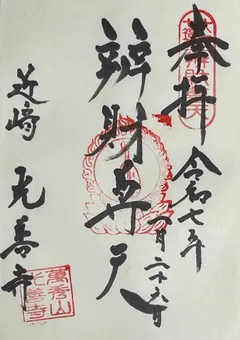 奉拝
令和七年
一月二十六日
辨財尊天
近崎 光善寺
萬秀山
光善寺